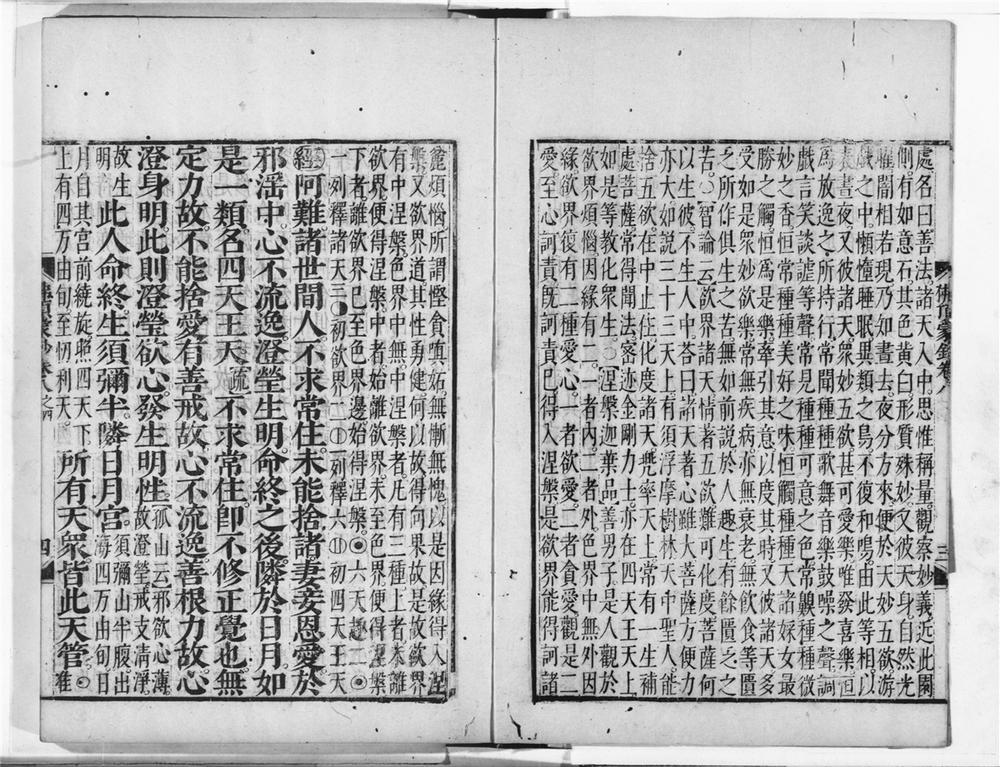 處名曰善法諸天入中思惟稱量觀察妙義近此園
側有如意石其色黃白形質殊妙又彼天身自然光
曜闇相若現乃知晝去夜分方來便於天妙五欲游
戲之中懶憧睡眠異類之鳥不復和鳴由此等相以
表晝夜又彼諸天衆妙五欲甚可愛樂唯發喜樂恒
爲放逸之所持行常聞種種歌舞音樂鼓噪之聲調
戲言笑談謔等聲常見種種可意之色常齅種種微
妙之香恒常種種美好之味恒觸種種天諸婇女最
勝之觸恒爲是樂牽引其意以度其時又彼諸天多
受如是衆妙欲樂常無疾病亦無衰老無飲食等匱
乏所作俱生之苦無如前說於人趣生有餘匱乏之
苦○智論云欲界諸天情著五欲難可化度菩薩何
以生彼不生人中答曰諸天著心雖大菩薩方便力
亦大如說三十三天上有須浮摩樹林天中聖人能
捨五欲在中止住化度諸天兜率天上常有一生補
處菩薩常得聞法密迹金剛力士亦在四天王天上
如是等教化衆生○涅槃迦葉品善男子是人觀於
欲界煩惱因緣有二一者內二者外色界中無外因
緣欲界復有二種愛心一者欲愛二者貪愛觀是二
愛至心訶責既訶責已得入涅槃是欲界能得訶諸
佛頂蒙鈔卷八
三
麄煩惱所謂慳貪嗔妬無慚無愧以是因緣得入涅
槃又欲界道其性勇健何以故得向果故是故欲界
有中涅槃色界中無中涅槃者凡有三種上者未離
欲界便得涅槃中者始離欲界未至色界便得涅槃
下者離欲界已至色界邊始得涅槃◎六天趣二◎
一列釋諸天三○初欲界二初列釋六初四天王天
經阿難諸世間人不求常住未能捨諸妻妾恩愛於
邪婬中心不流逸澄瑩生明命終之後隣於日月如
是一類名四天王天疏不求常住即不修正覺也無
定力故不能捨愛有善戒故心不流逸善根力故心
澄身明此則澄瑩欲心發生明性孤山云邪欲心薄故澄瑩戒支清淨
故生明此人命終生須彌半隣日月宮須彌山半腹出海四万由旬日
月自其宮前繞旋照四天下上有四万由旬至忉利天所有天衆皆此天管○唯
佛頂蒙鈔卷八之四
四